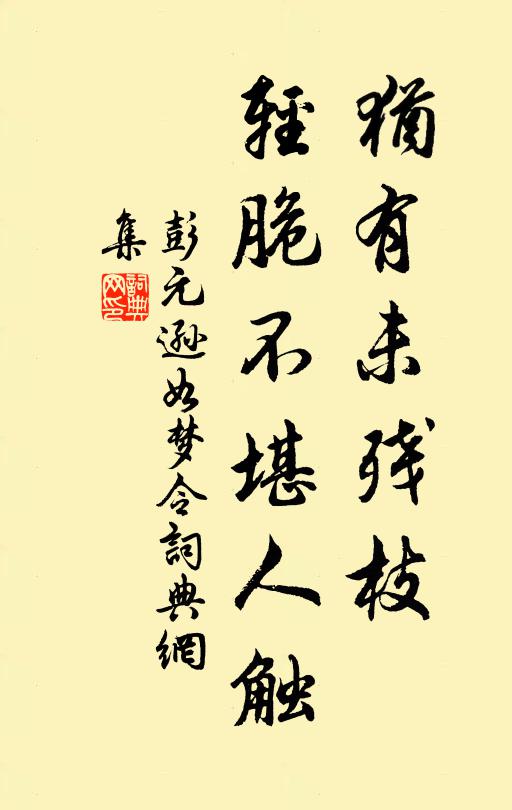 猶有未残枝
輕脆不堪人触
彭元遜如梦令詞典網
集
詞典
网印